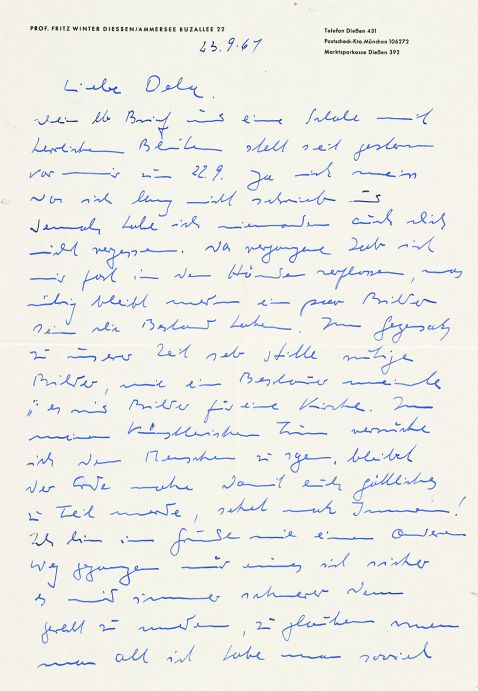 PROF. FRITZ WINTER DIESSEN/AMMERSEE BUZALLEE 22
Telefon Dießen 431
Postscheck-Kto. München 106272
Marktsparkasse Dießen 392
23.9.61
Liebe Dela,
Dein lb Brief und eine Schale mit
herrlichen Blüten steht seit gestern
vor mir zum 22.9. Ja ich
was ich lang nicht schrieb
niemanden auch dich
nicht vergessen. Das vergangene Jahr ist
mir fast in den Händen zerflossen, was
übrig bleibt werden ein paar Bilder
sein die Bestand haben. Im Gegensatz
zu unserer Zeit sehr stille ruhige
Bilder, wie ein Besucher meinte
"es sind Bilder für eine Kirche. In
meinem Künstlerischen Tun versuche
ich den Menschen zu sagen, bleibt
der Erde nahe damit euch göttliches
zu Teil werde, sehet nach Innen!
Ich bin im Grunde nie einen anderen
Weg gegangen nur eines ist sicher
es wird immer schwerer dem
gerecht zu werden, zu glauben wenn
man alt ist habe man soviel